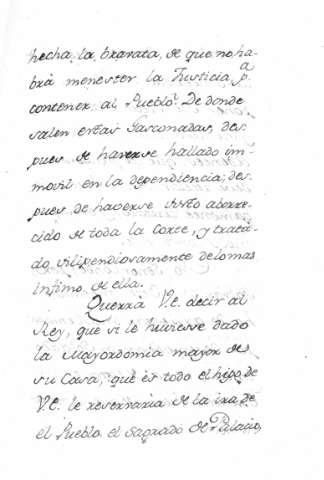 hecha la bravata, de que no ha-
brà menester la Justicia p.a
contener al Pueblo. De donde
salen estas Gasconadas, des-
pues de haverse hallado im-
movil en la dependiencia; des
pues de haverse visto aborre-
cido de toda la Corte, y trata-
do vilipendiosamente de lo mas
infimo de ella.
Querrà V.E. decir al
Rey, que si le huviesse dado
la Mayordomia mayor de
su Casa, que es todo el higo de
V.E. le reservaria de la ira de
el Pueblo el Sagrado de Palacio,